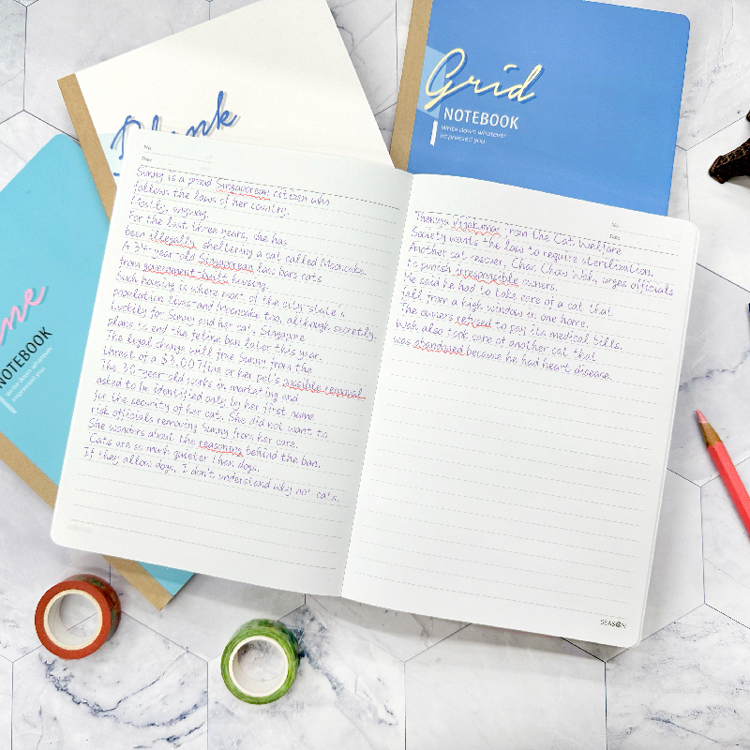 Blank
Grid
NOTEBOOK
Write down whatever
impressed you
NOTEBOOK
No.
Date
Sunny is a proud Singaporean citizen who
follows the laws of her country.
Mostly, anyway.
For the last three years, she has
been illegally sheltering a cat called Mooncake.
A 34-year-old Singaporean law bars cats
from government-built housing.
Such housing is where most of the city-state's
population lives-and Mooncake too, although secretly.
Luckily for Sunny and her cat, Singapore
plans to end the feline ban later this year.
The legal change will free Sunny from the
threat of a $3,007 fine or her pet's possible removal.
The 30-year-old works in marketing and
asked to be identified only by her first name
for the security of her cat. She did not want to
risk officials removing Sunny from her care.
She wonders about the reasoning behind the ban.
Cats are so much quieter than dogs.
If they allow dogs, I don't understand why not cats.
No.
Date
Thenuga Vijakumar from the Cat Welfare
Society wants the law to require sterilization.
Another cat rescuer, Chan Chow Wah, urges officials
to punish irresponsible owners.
He said he had to take care of a cat that
fell from a high window in one home.
The owners refused to pay its medical bills.
Wah also took care of another cat that
was abandoned because he had heart disease.
SEASON